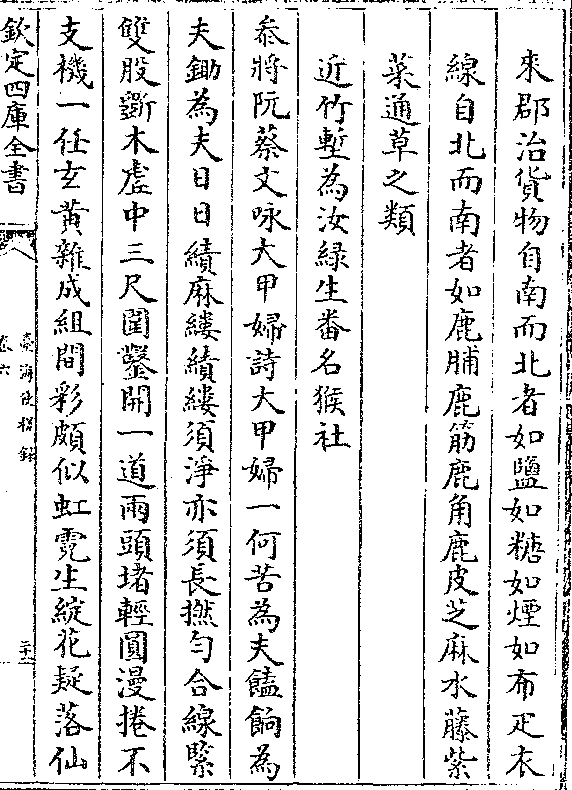 來郡治貨物自南而北者如鹽如糖如煙如布疋衣
線自北而南者如鹿脯鹿筋鹿角鹿皮芝麻水藤紫
菜通草之類
近竹塹為汝綠生番名猴社
叅將阮蔡文咏大甲婦詩大甲婦一何苦為夫饁餉為
夫鋤為夫日日績麻縷績縷須淨亦須長撚勻合線緊
雙股斲木虛中三尺圍鑿開一道兩頭堵輕圓漫捲不
支機一任玄黃雜成組間彩頗似虹霓生綻花疑落仙
欽定四庫全書
臺海使槎録
卷六